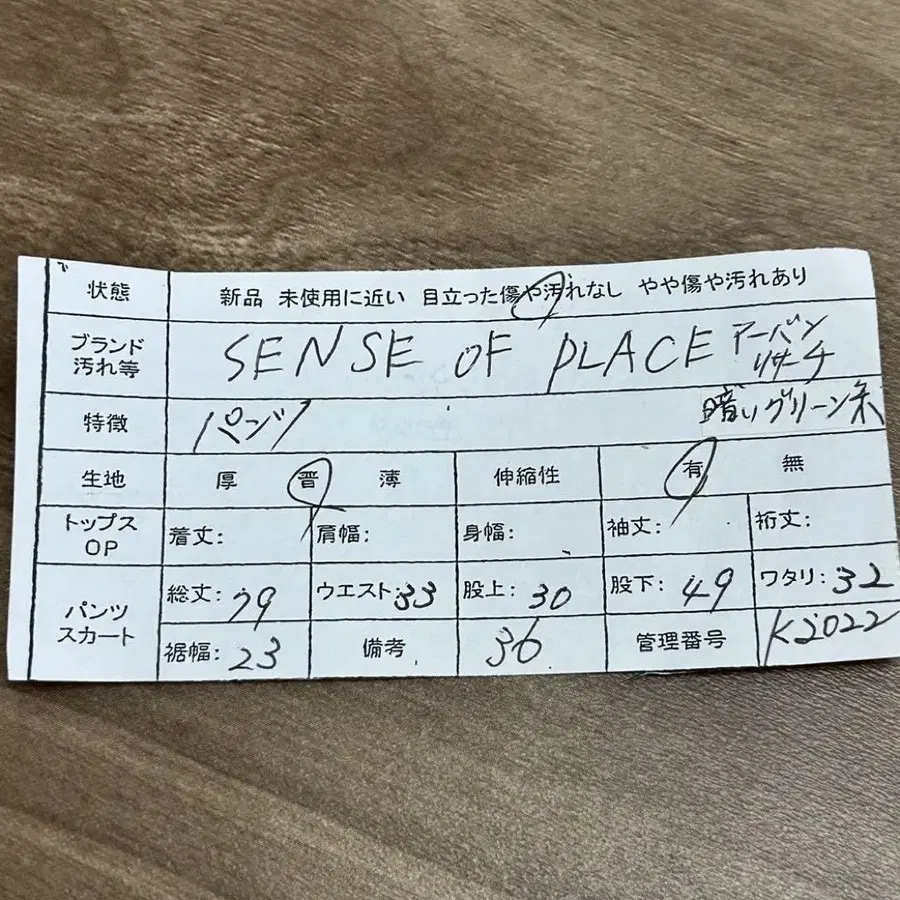 状態 新品 未使用に近い 目立った傷や汚れなし やや傷や汚れあり
ブランド 汚れ等 SENSE OF PLACE アーバン リサーチ
特徴 パンツ 暗いグリーン系
生地 厚 普 薄 伸縮性 有 無
トップス OP 着丈: 肩幅: 身幅: 袖丈: 裄丈:
パンツ スカート 総丈: 79 ウエスト: 33 股上: 30 股下: 49 ワタリ: 32
裾幅: 23 備考 36 管理番号 K2022